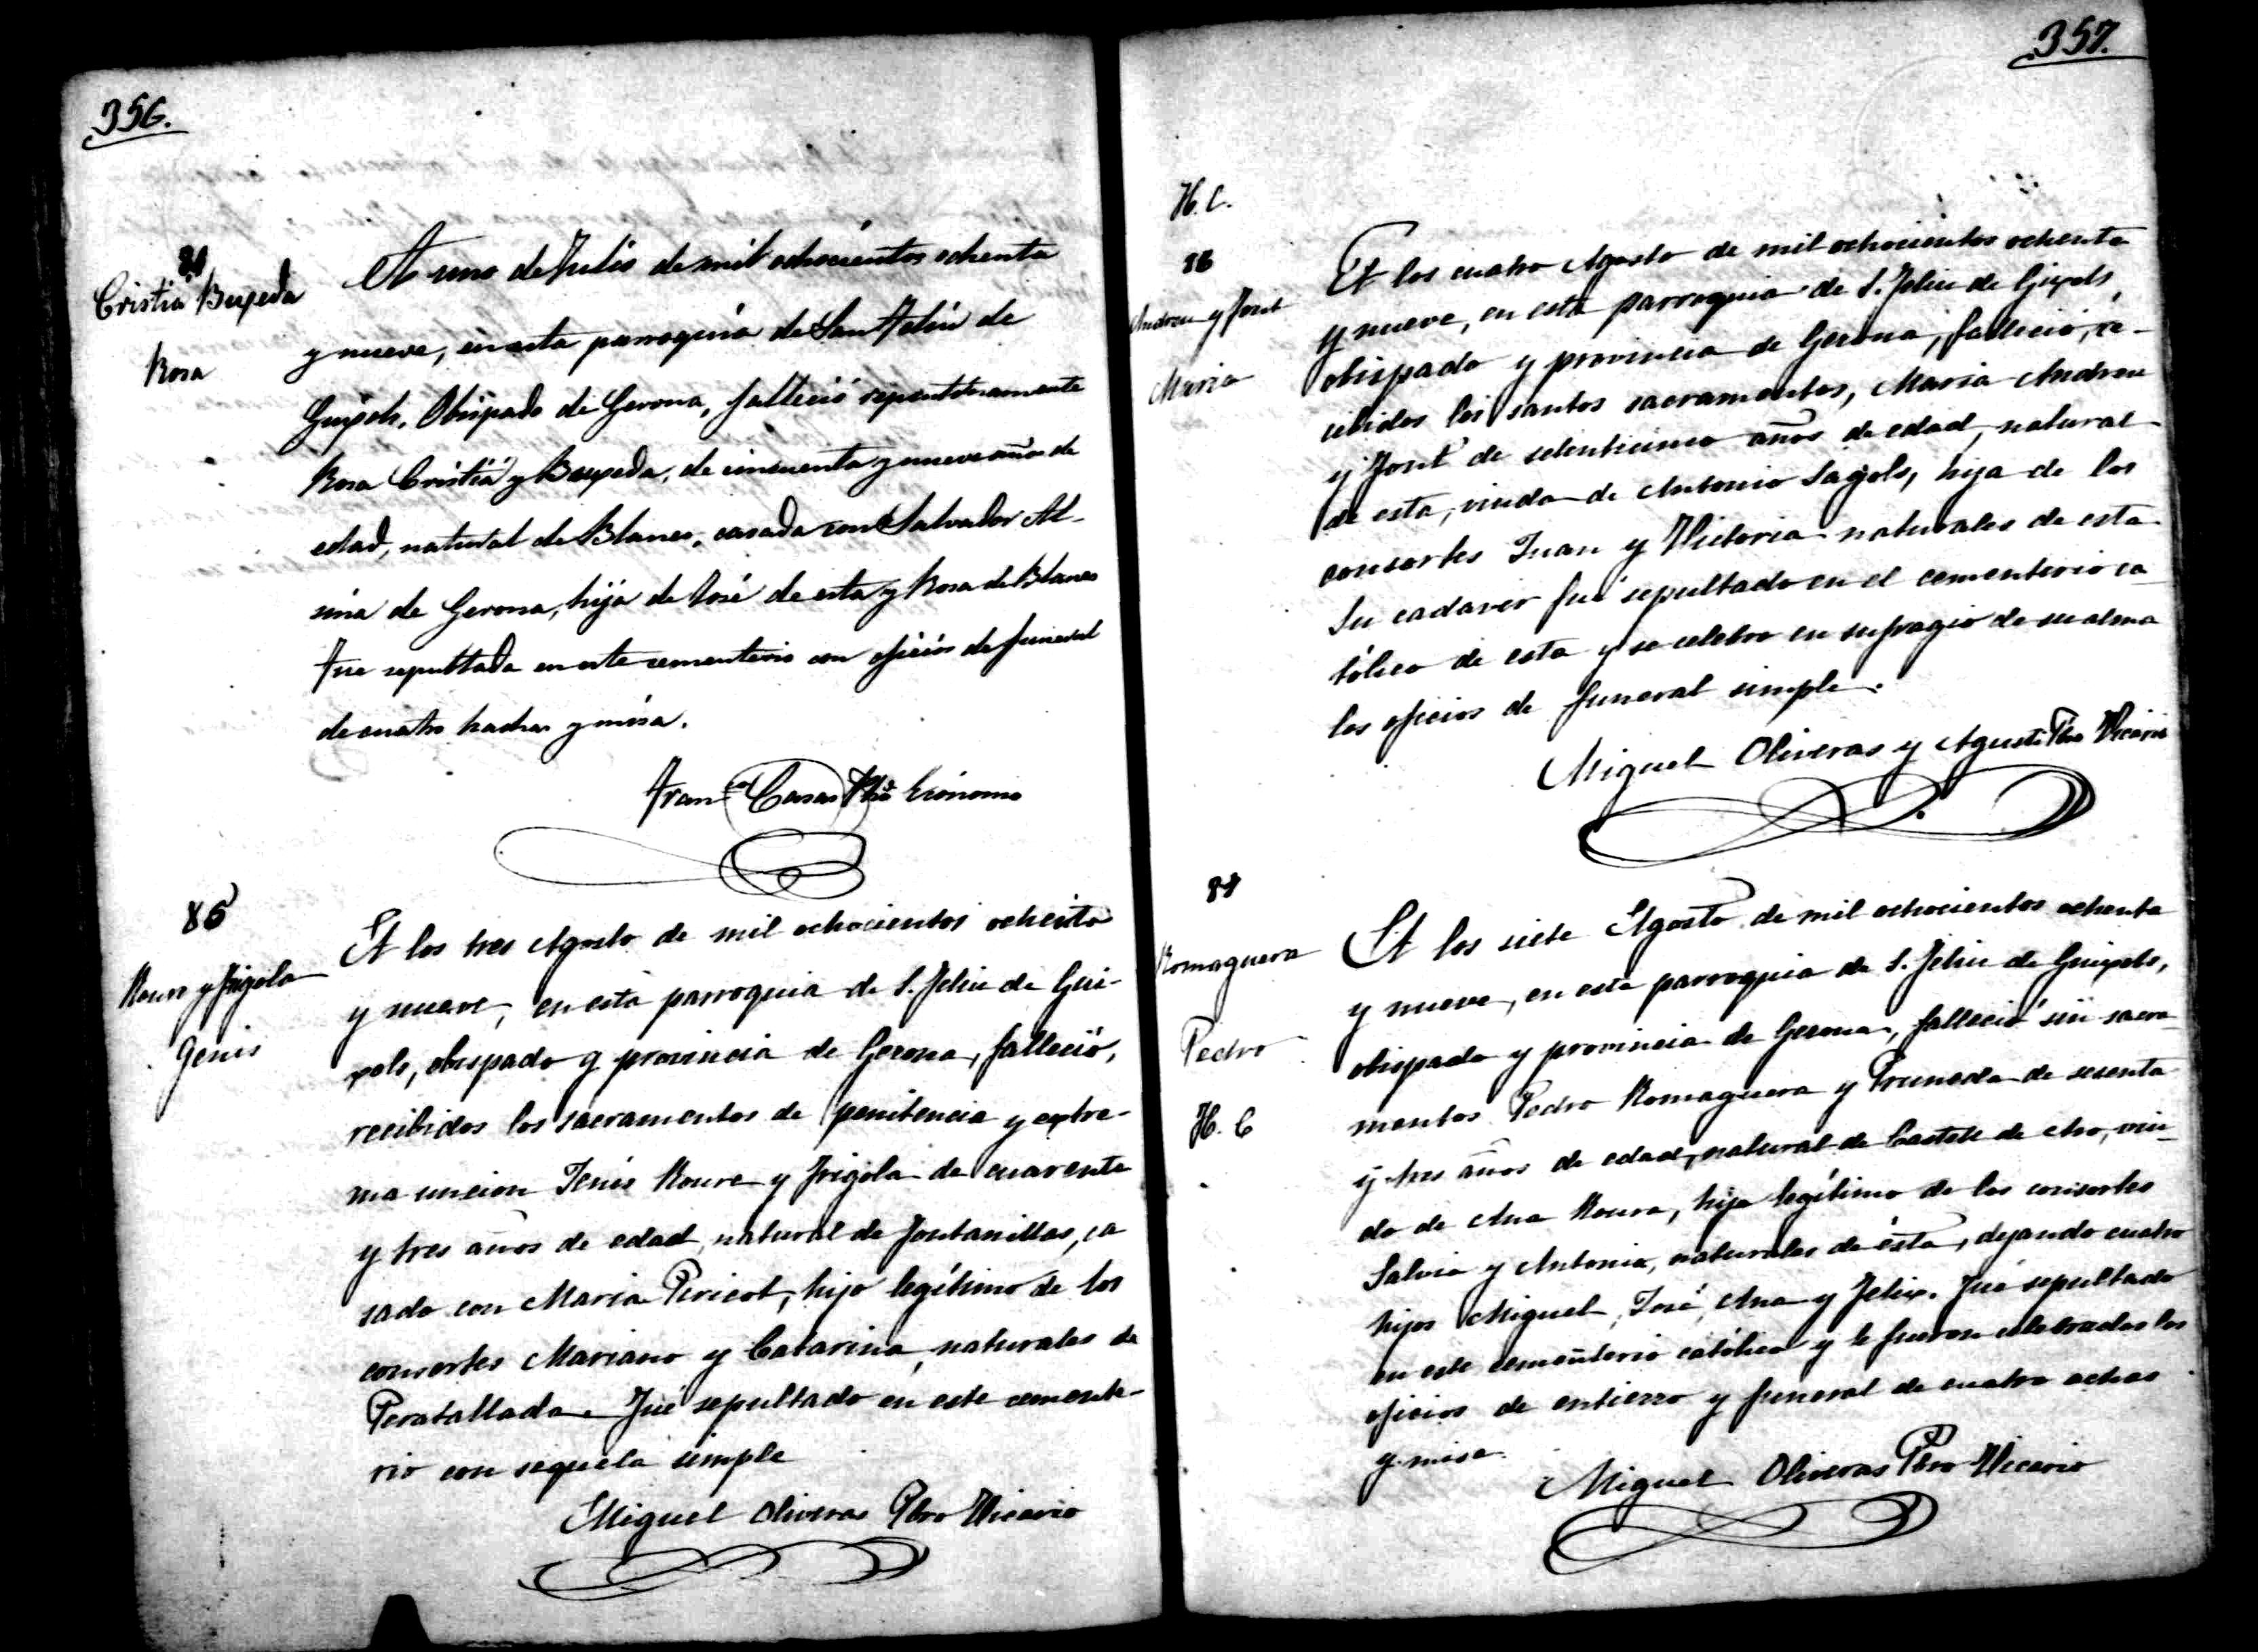 356.
84
Cristiá Buxeda
Rosa
A uno de Julio de mil ochocientos ochenta
y nueve, en esta parroquia de San Feliu de
Guixols, Obispado de Gerona, falleció repentinamente
Rosa Cristiá y Buxeda, de cincuenta y nueve años de
edad, natural de Blanes, casada con Salvador Al-
sina de Gerona, hija de José de esta y Rosa de Blanes
Fue sepultada en este cementerio con oficios de funeral
de cuatro hachas y misa.
Franco Casas Pbro Ecónomo
85
Roure y Frigola
Genis
A los tres Agosto de mil ochocientos ochenta
y nueve, en esta parroquia de S. Feliu de Gui-
xols, obispado y provincia de Gerona, falleció,
recibidos los sacramentos de penitencia y extre-
ma uncion Jenis Roure y Frigola de cuarenta
y tres años de edad, natural de Fontanillas, ca
sado con Maria Pericot, hijo legítimo de los
consortes Mariano y Catarina, naturales de
Peratallada. Fué sepultado en este cemente-
rio con sequela simple
Miguel Oliveras Pbro Vicario
357.
H. C.
86
Andreu y Font
Maria
A los cuatro Agosto de mil ochocientos ochenta
y nueve, en esta parroquia de S. Feliu de Guixols,
obispado y provincia de Gerona, falleció, re-
cibidos los santos sacramentos, Maria Andreu
y Font de setenticinco años de edad, natural
de esta, viuda de Antonio Sagols, hija de los
consortes Juan y Victoria naturales de esta
Su cadaver fué sepultado en el cementerio ca
tólico de esta y se celebro en sufragio de su alma
los oficios de funeral simple.
Miguel Oliveras y Agusti Pbro Vicario
87
Romaguera
Pedro
H. C
A los siete Agosto de mil ochocientos ochenta
y nueve, en esta parroquia de S. Feliu de Guixols,
obispado y provincia de Gerona, falleció sin sacra
mentos Pedro Romaguera y Pruneda de sesenta
y tres años de edad, natural de Castell de Aro, viu-
do de Ana Roura, hijo legítimo de los consortes
Salvio y Antonia, naturales de ésta, dejando cuatro
hijos Miguel, José, Ana y Felix. Fué sepultado
en este cementerio católico y le fueron celebrados los
oficios de entierro y funeral de cuatro achas
y misa.
Miguel Oliveras Pbro Vicario